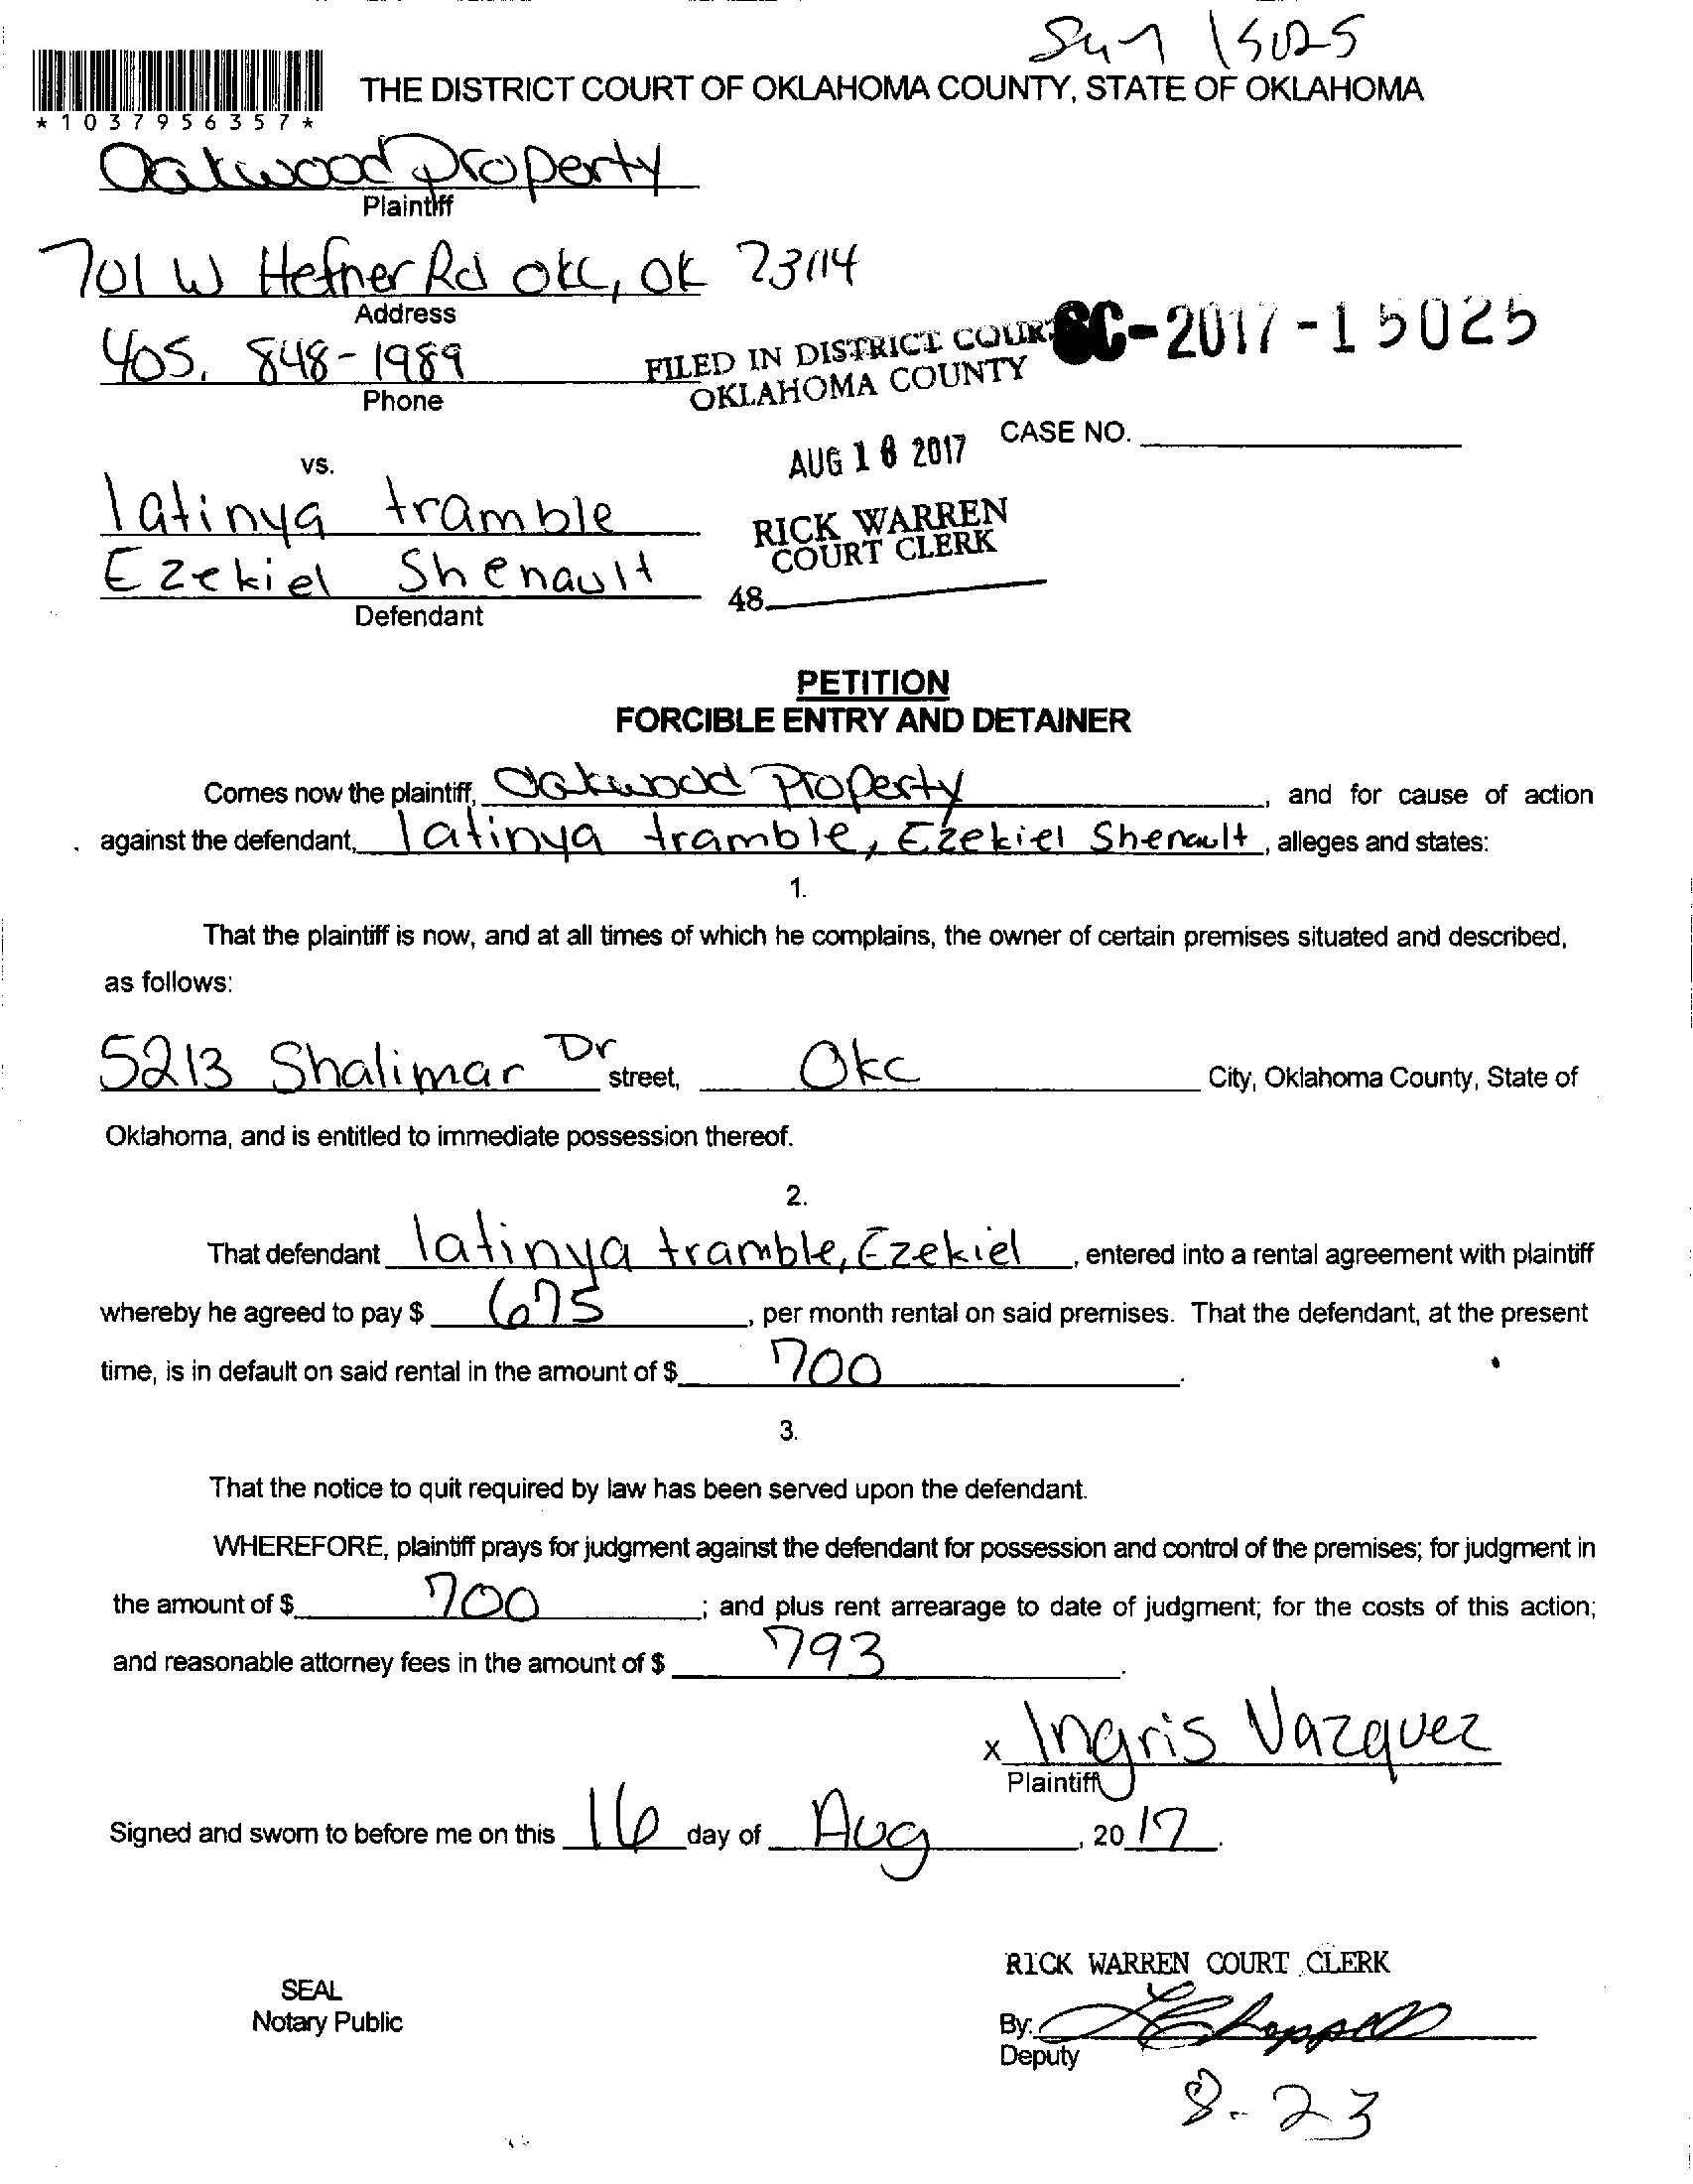 15025
THE DISTRICT COURT OF OKLAHOMA COUNTY, STATE OF OKLAHOMA
*1037956357*
Oakwood Property
Plaintiff
701 W Hefner Rd OKC, OK 73114
Address
405. 848-1989
Phone
FILED IN DISTRICT COURT
OKLAHOMA COUNTY
SC-2017-15025
CASE NO.
AUG 16 2017
vs.
latinya tramble
RICK WARREN
COURT CLERK
Ezekiel Shenault
48
Defendant
PETITION
FORCIBLE ENTRY AND DETAINER
Comes now the plaintiff, Oakwood Property, and for cause of action
against the defendant, latinya tramble, Ezekiel Shenault, alleges and states:
1.
That the plaintiff is now, and at all times of which he complains, the owner of certain premises situated and described,
as follows:
5213 Shalimar Dr street, Okc City, Oklahoma County, State of
Oklahoma, and is entitled to immediate possession thereof.
2.
That defendant latinya tramble, Ezekiel, entered into a rental agreement with plaintiff
whereby he agreed to pay $ 675, per month rental on said premises. That the defendant, at the present
time, is in default on said rental in the amount of $ 700.
3.
That the notice to quit required by law has been served upon the defendant.
WHEREFORE, plaintiff prays for judgment against the defendant for possession and control of the premises; for judgment in
the amount of $ 700; and plus rent arrearage to date of judgment; for the costs of this action;
and reasonable attorney fees in the amount of $ 793.
x Ingris Vazquez
Plaintiff
Signed and sworn to before me on this 16 day of Aug, 2017.
RICK WARREN COURT CLERK
SEAL
Notary Public
By:
Deputy
8-23